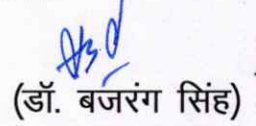 (डॉ. बजरंग सिंह)